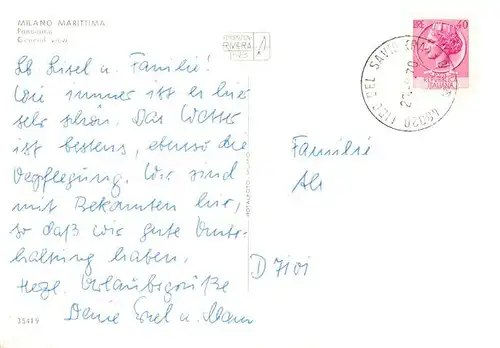 MILANO MARITTIMA
Panorama
General view
RIVIERA
Lb Lisel u. Familie!
Wie immer ist es hier
sehr schön. Das Wetter
ist bestens, ebenso die
Verpflegung. Wir sind
mit Bekannten hier,
so daß wir gute Unter-
haltung haben.
Herzl. Urlaubsgrüße
Deine u. Mann
Familie
D 7101
LIRE 40
ITALIANA
35419